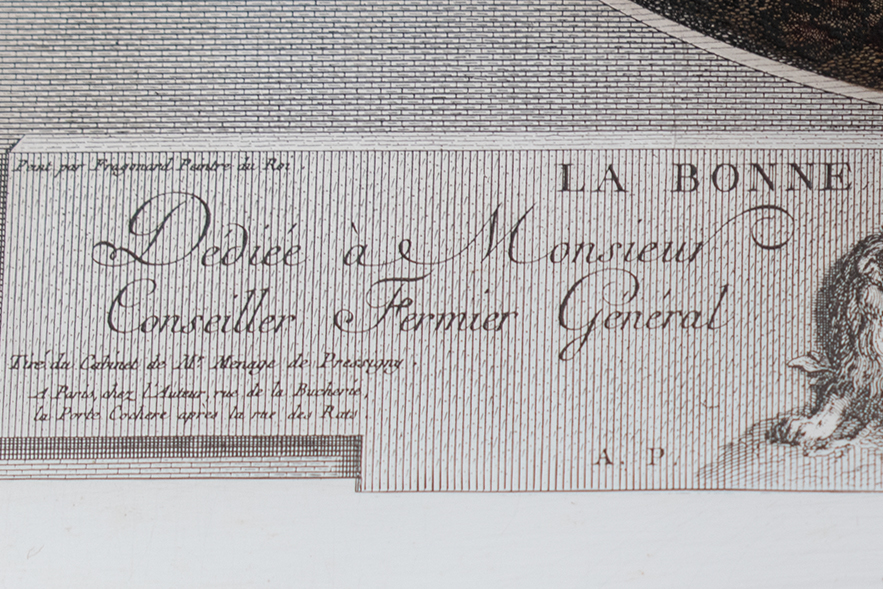 Peint par Fragonard Peintre du Roi
LA BONNE
Dédiée à Monsieur
Conseiller Fermier Général
Tiré du Cabinet de Mr Menage de Pressigny.
A Paris, chez l'Auteur, rue de la Bucherie,
la Porte Cochere après la rue des Rats.
A. P.